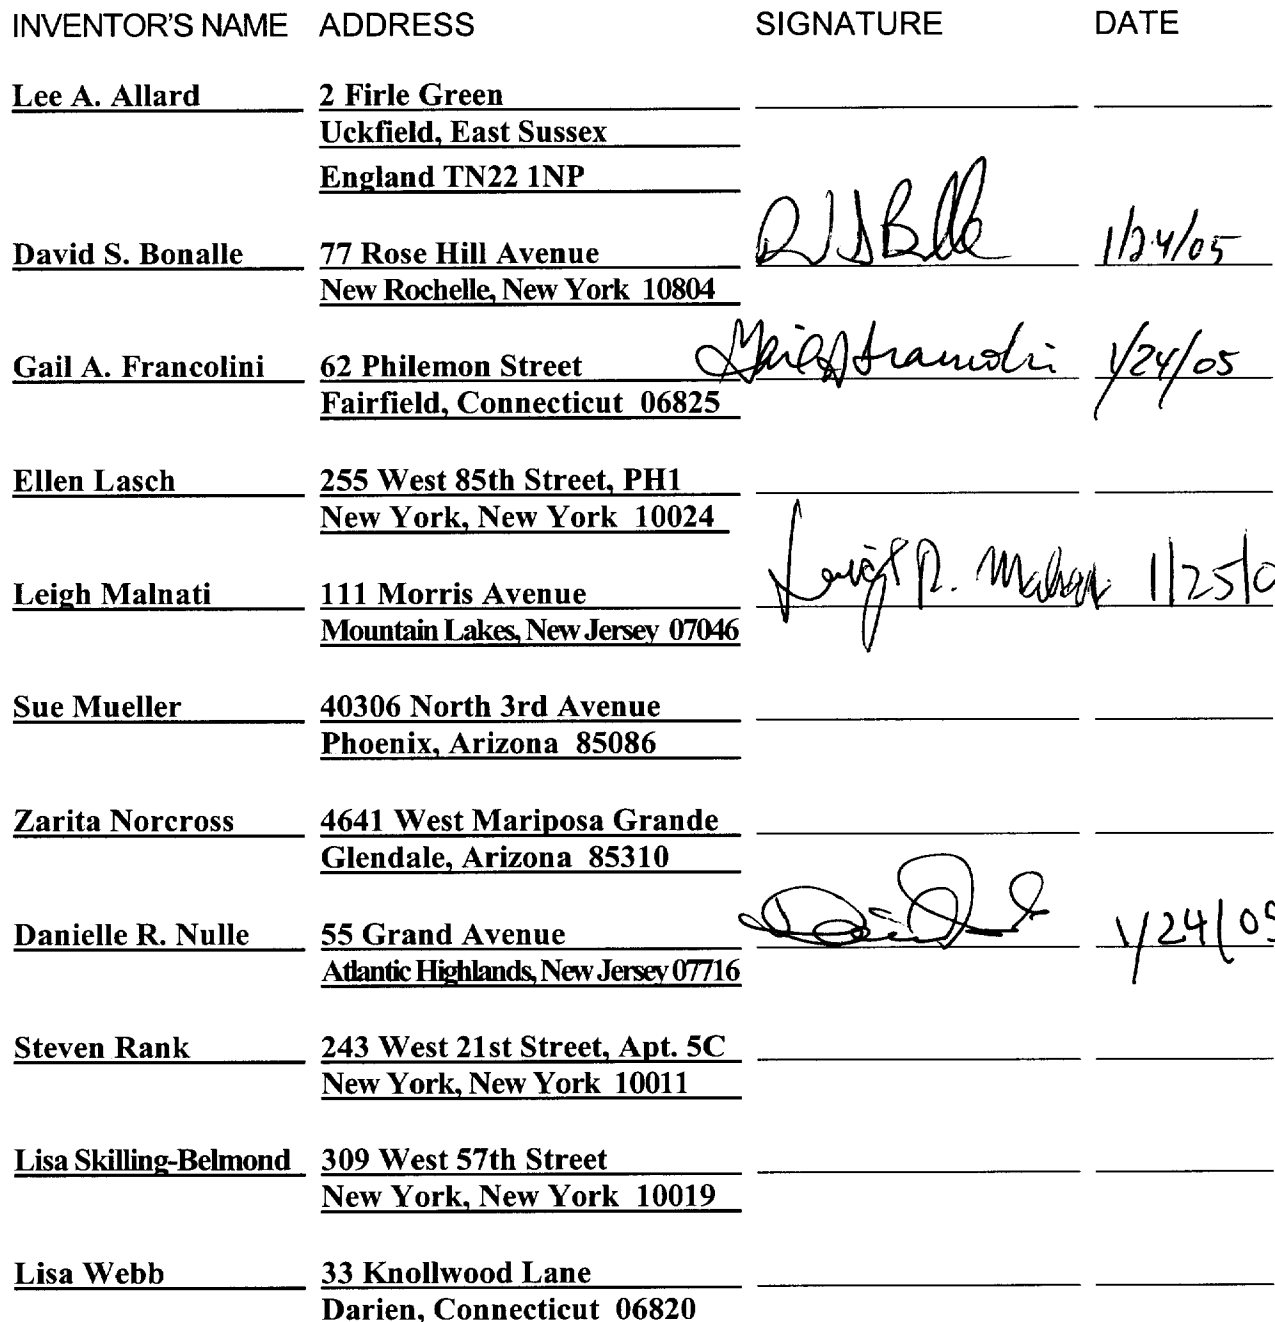 INVENTOR'S NAME ADDRESS SIGNATURE DATE
Lee A. Allard 2 Firle Green
Uckfield, East Sussex
England TN22 1NP
David S. Bonalle 77 Rose Hill Avenue 1/24/05
New Rochelle, New York 10804
Gail A. Francolini 62 Philemon Street Gail A Francolini 1/24/05
Fairfield, Connecticut 06825
Ellen Lasch 255 West 85th Street, PH1
New York, New York 10024
Leigh Malnati 111 Morris Avenue Leigh R. 1/25/0
Mountain Lakes, New Jersey 07046
Sue Mueller 40306 North 3rd Avenue
Phoenix, Arizona 85086
Zarita Norcross 4641 West Mariposa Grande
Glendale, Arizona 85310
Danielle R. Nulle 55 Grand Avenue 1/24/05
Atlantic Highlands, New Jersey 07716
Steven Rank 243 West 21st Street, Apt. 5C
New York, New York 10011
Lisa Skilling-Belmond 309 West 57th Street
New York, New York 10019
Lisa Webb 33 Knollwood Lane
Darien, Connecticut 06820